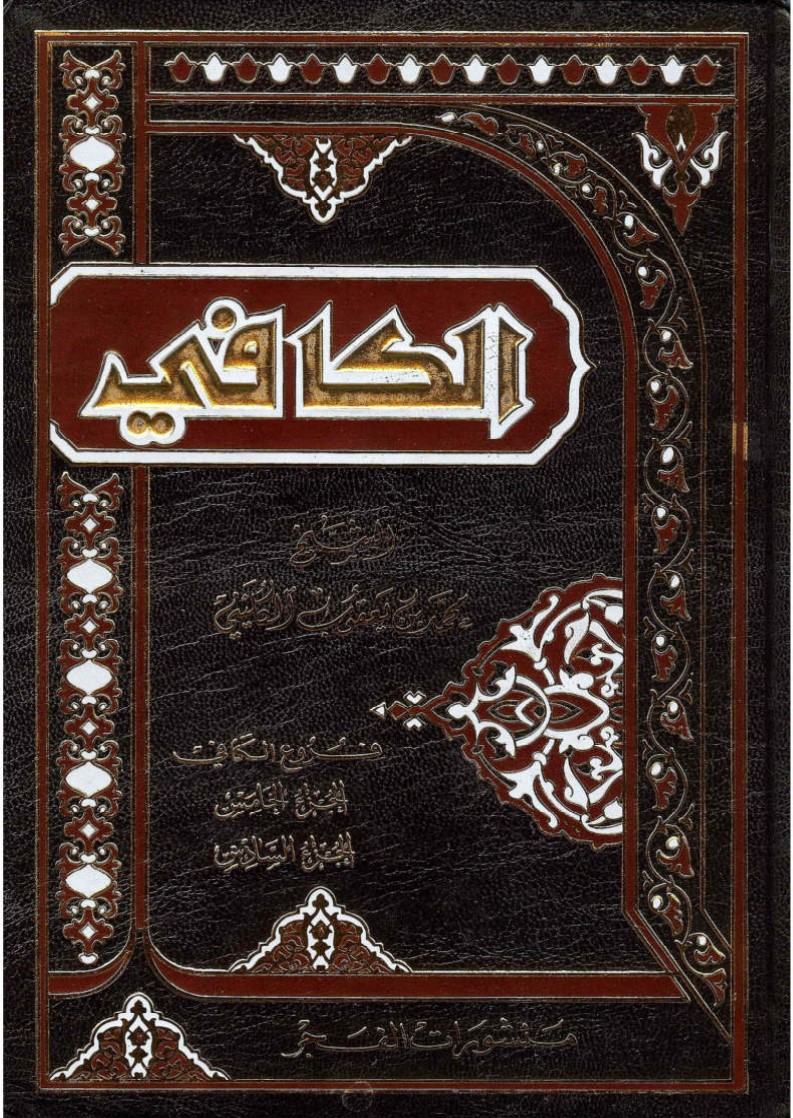 الكافي
الشيخ
محمد بن يعقوب الكليني
فروع الكافي
الجزء الخامس
الجزء السادس
منشورات الفجر